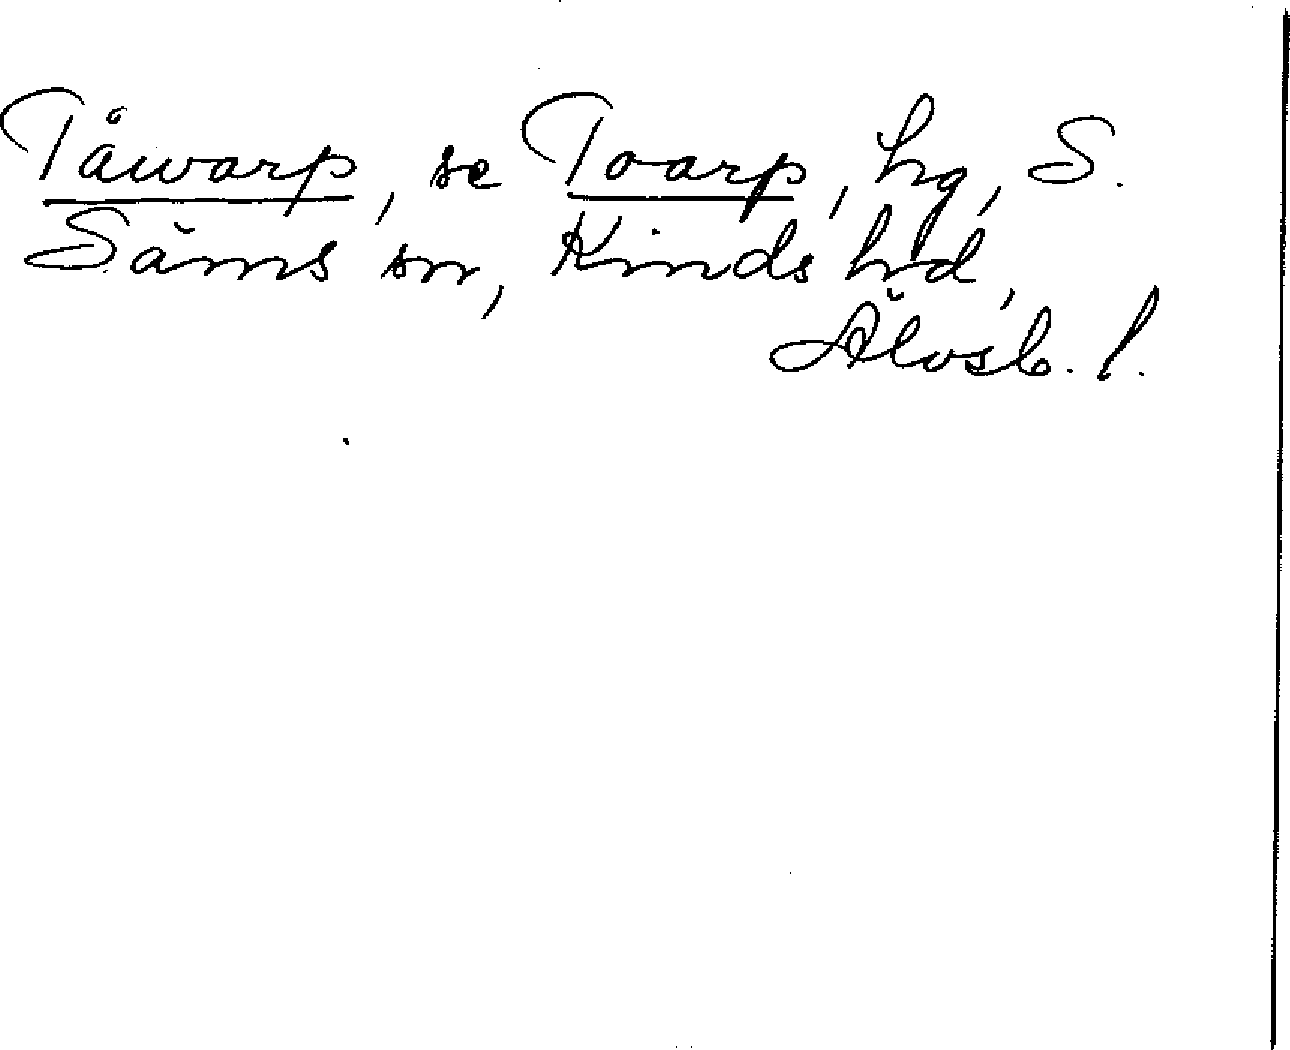 Tåwarp, se Toarp, hg, S.
Säms sn, Kinds hd,
Älvsb. l.